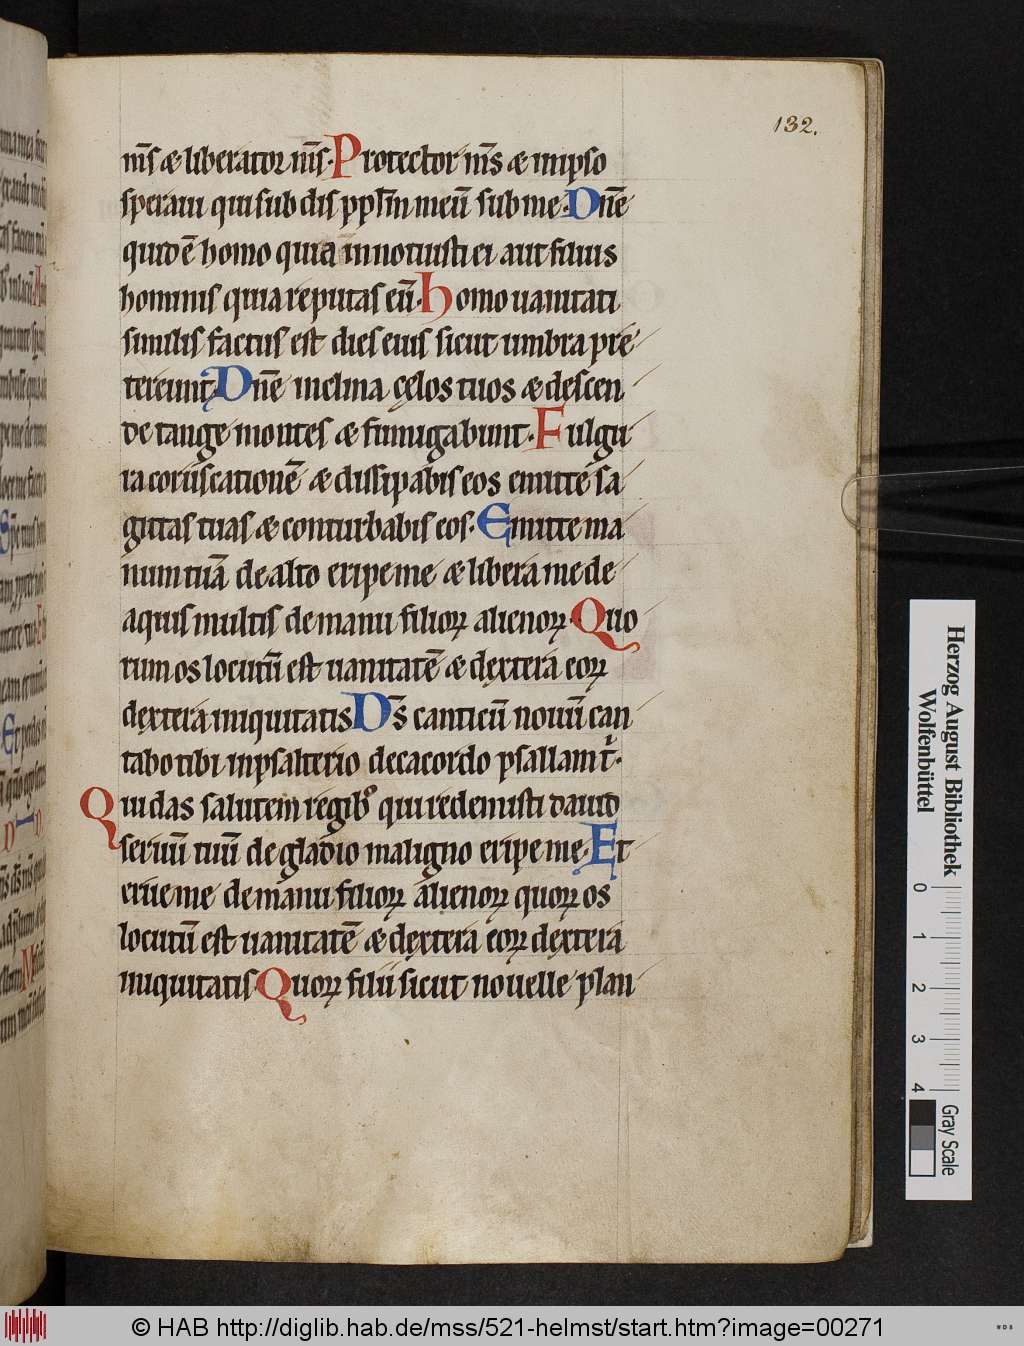 132.
nr̄s & liberator nr̄s. Protector nr̄s & in ipso
speraui qui subdis pplm̄ meū sub me. Dn̄e
quid ē homo quia innotuisti ei aut filius
hominis quia reputas eū. homo uanitati
similis factus est dies eius sicut umbra pre
tereunt. Dn̄e inclina cęlos tuos & descen
de tange montes & fumigabunt. Fulgu
ra coruscationē & dissipabis eos emitte sa
gittas tuas & conturbabis eos. Emitte ma
num tuā de alto eripe me & libera me de
aquis multis de manu filioꝝ alienoꝝ. Quo
rum os locutū est uanitatē & dextera eoꝝ
dextera iniquitatis. Ds̄ canticū nouū can
tabo tibi in psalterio decacordo psallam t.
Qui das salutem regibꝰ qui redemisti dauid
seruū tuū de gladio maligno eripe me. Et
erue me de manu filioꝝ alienoꝝ quoꝝ os
locutū est uanitatē & dextera eoꝝ dextera
iniquitatis. Quoꝝ filii sicut nouelle plan
Herzog August Bibliothek
Wolfenbüttel
0 1 2 3 4
Gray Scale
© HAB http://diglib.hab.de/mss/521-helmst/start.htm?image=00271